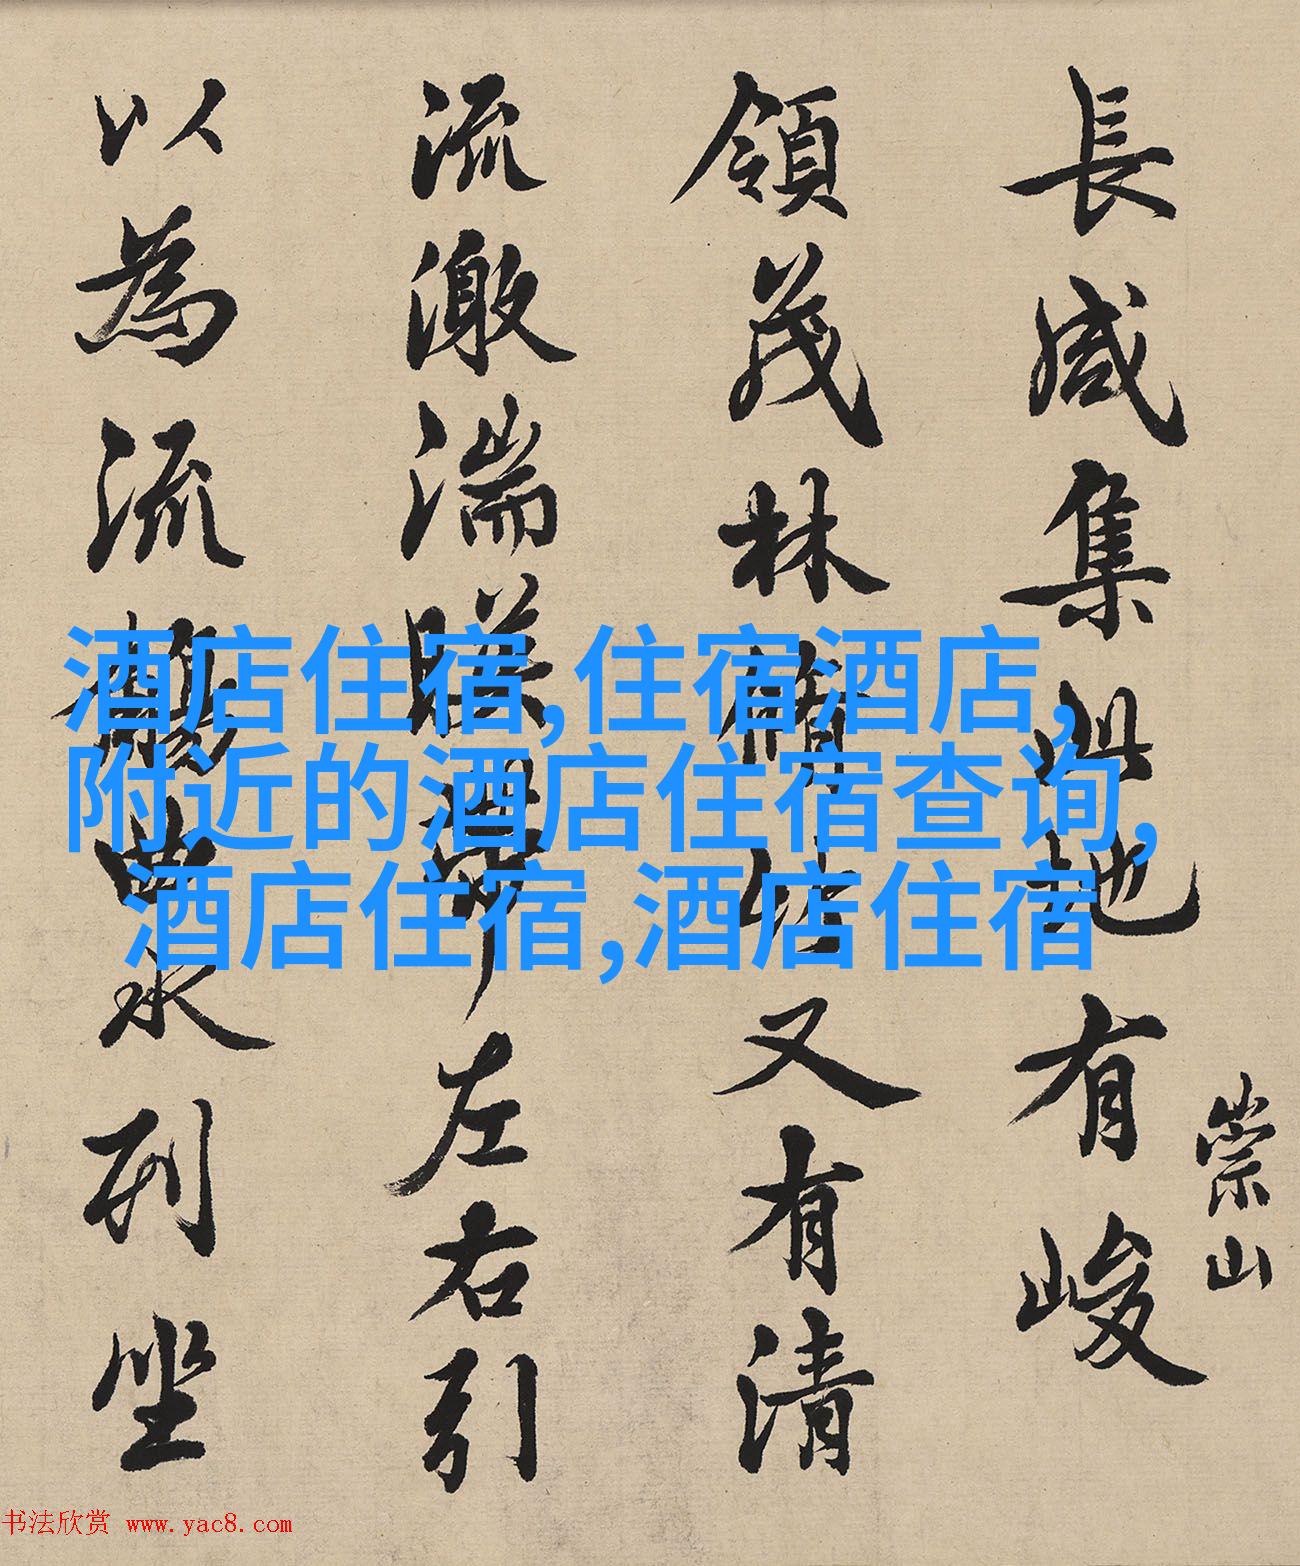 崇山
長咸集此地有峻
領茂林脩竹又有清
流激湍暎帶左右引
以為流觴曲水列坐
酒店住宿,住宿酒店,
附近的酒店住宿查询,
酒店住宿,酒店住宿
书法欣赏 www.yac8.com